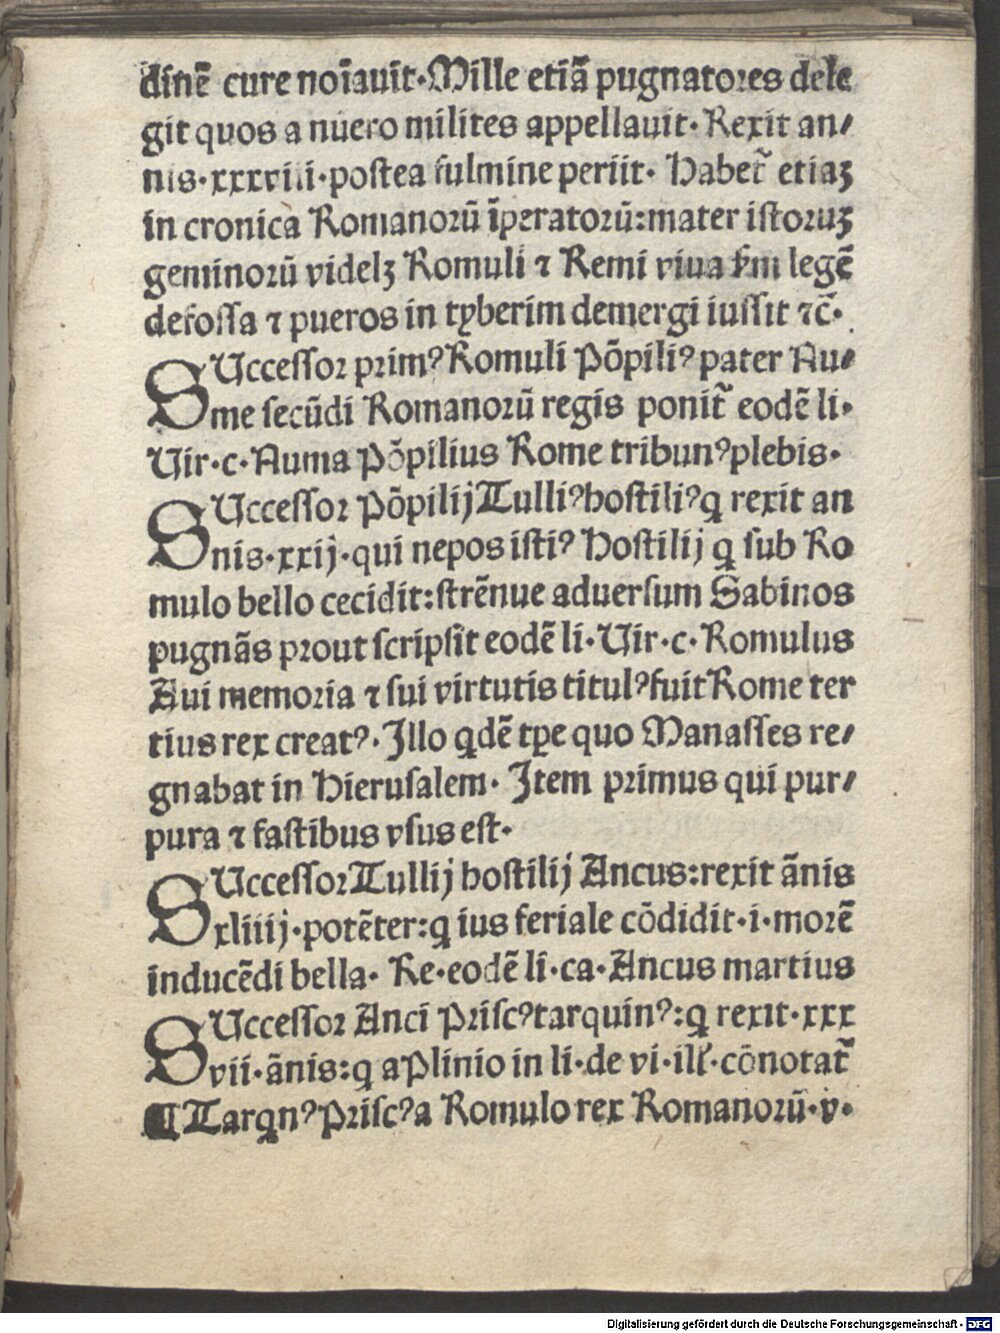 dinē cure noīauit·Mille etiā pugnatores dele
git quos a nūero milites appellauit· Rexit an⸗
nis·xxxviii·postea fulmine periit· Habet᷑ etiaꝫ
in cronica Romanorū īperatorū:mater istoruꝫ
geminorū videlꝫ Romuli ⁊ Remi viua ẜm legē
defossa ⁊ pueros in tyberim demergi iussit ⁊c̄·
SUccessor primꝰ Romuli Pōpiliꝰ pater Nu⸗
me secūdi Romanorū regis ponit᷑ eodē li·
Uir·c·Numa Pōpilius Rome tribunꝰ plebis·
SUccessor Pōpilij Tulliꝰ hostiliꝰ q rexit an
nis·xxij·qui nepos istiꝰ Hostilij q sub Ro
mulo bello cecidit:strēnue aduersum Sabinos
pugnās prout scripsit eodē li·Uir·c·Romulus
Aui memoria ⁊ sui virtutis titulꝰ fuit Rome ter
tius rex creatꝰ·Illo qdē tꝑe quo Manasses re⸗
gnabat in Hierusalem· Item primus qui pur⸗
pura ⁊ fastibus vsus est·
SUccessor Tullij hostilij Ancus:rexit ānis
xliiij·potēter:q ius feriale cōdidit·i·morē
inducēdi bella· Re·eodē li·ca·Ancus martius
SUccessor Anci Priscꝰ tarquinꝰ:q rexit·xxx
vii·ānis:q a Plinio in li·de vi·ill'·cōnotat᷑
¶ Tarqnꝰ Priscꝰ a Romulo rex Romanorū·v·
Digitalisierung gefördert durch die Deutsche Forschungsgemeinschaft - DFG